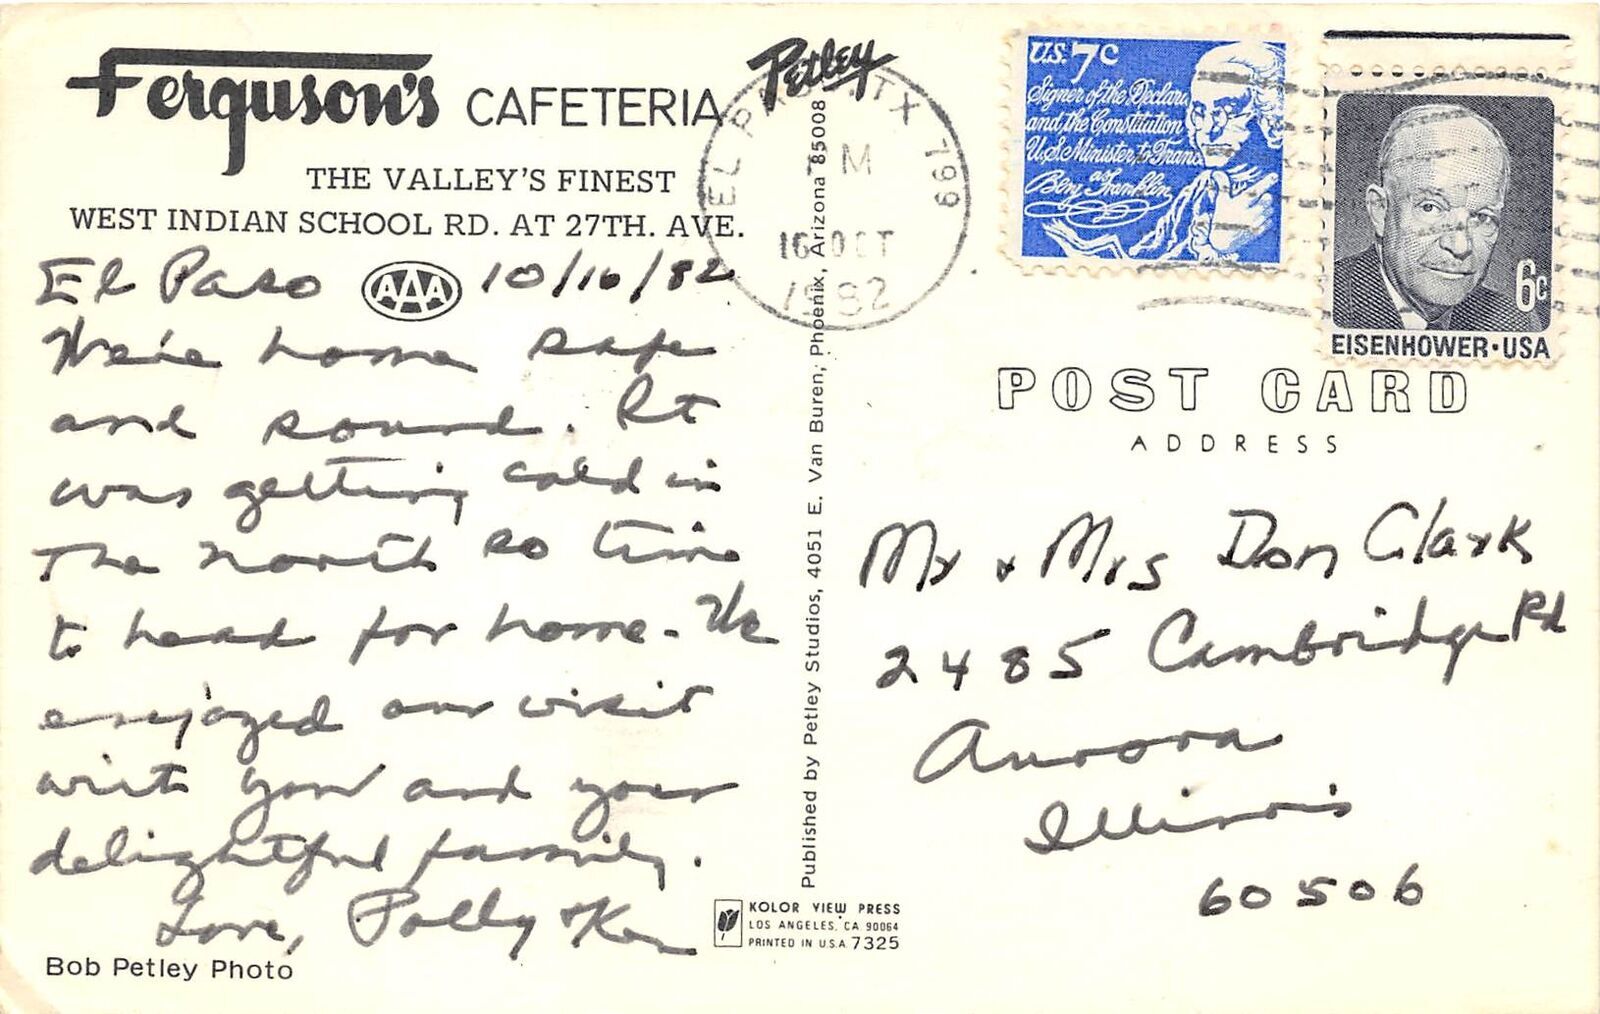 Ferguson's CAFETERIA
THE VALLEY'S FINEST
WEST INDIAN SCHOOL RD. AT 27TH. AVE.
AAA
El Paso 10/16/82
We're home safe
and sound. It
was getting cold in
the north so time
to head for home - We
enjoyed our visit
with you and your
delightful family.
Love, Polly & Ken
Bob Petley Photo
Petley
Published by Petley Studios, 4051 E. Van Buren, Phoenix, Arizona 85008
KOLOR VIEW PRESS
LOS ANGELES, CA 90064
PRINTED IN U.S.A. 7325
EL PASO, TX 799
PM
16 OCT
1982
U.S. 7c
Signer of the Declara
and the Constitution
U.S. Minister to Franc
as
Benj Franklin
6c
EISENHOWER·USA
POST CARD
ADDRESS
Mr & Mrs Don Clark
2485 Cambridge Rd
Aurora
Illinois
60506